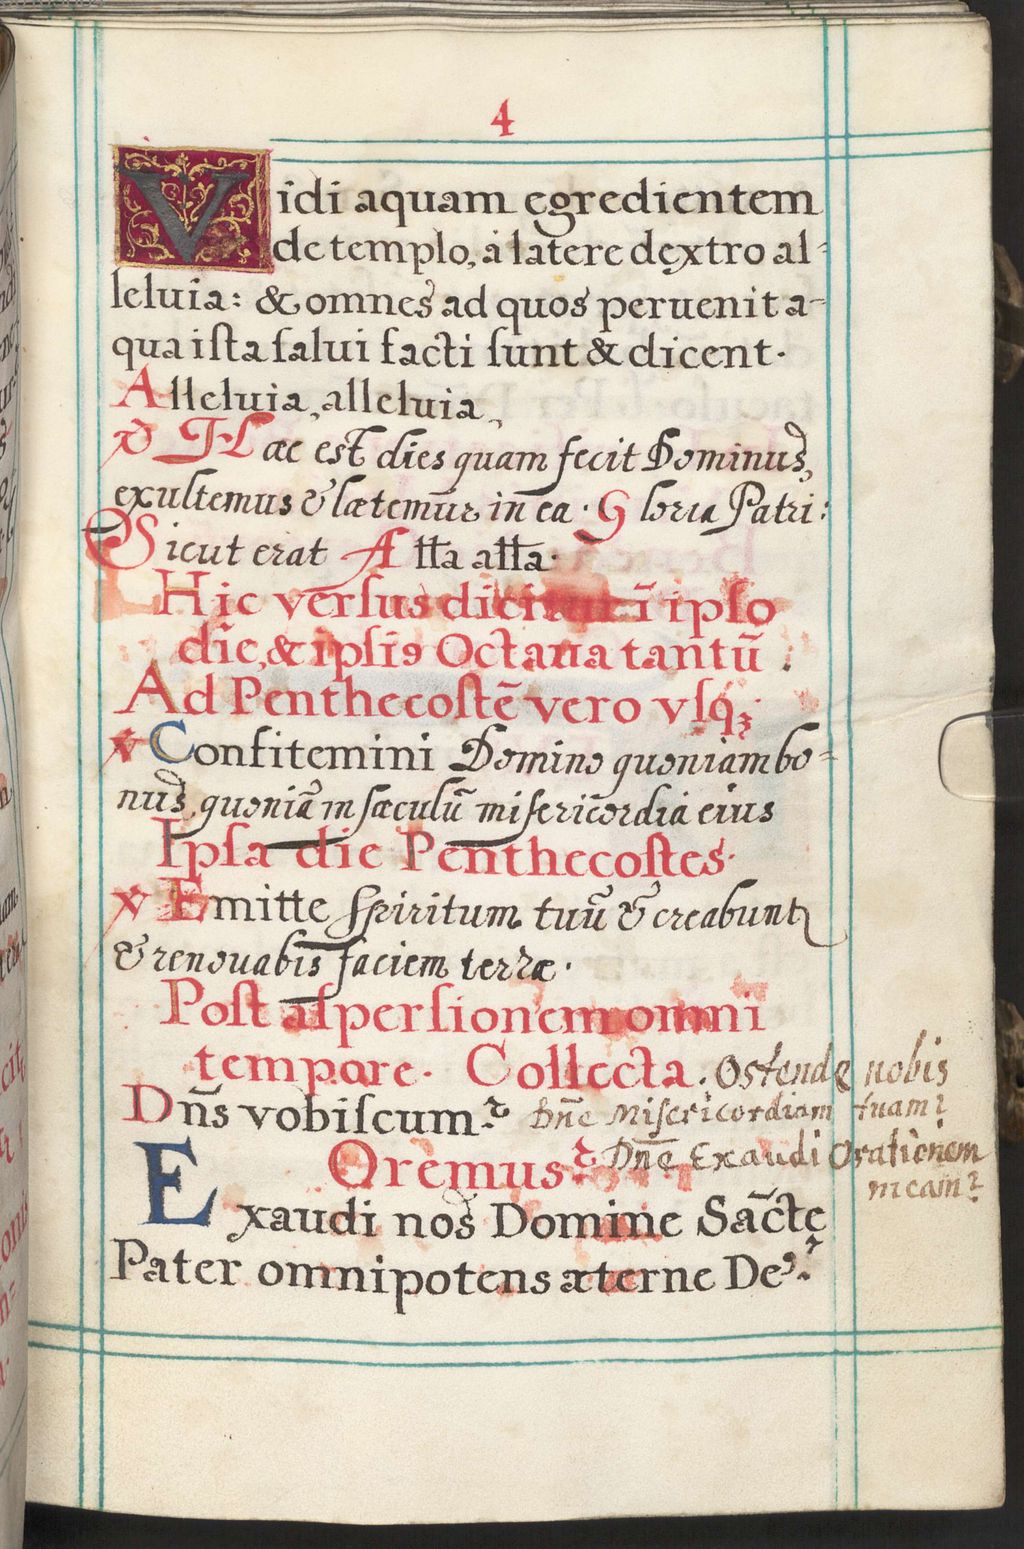 4
Vidi aquam egredientem
de templo, a latere dextro al-
leluia: & omnes ad quos peruenit a-
qua iſta ſalui facti ſunt & dicent.
Alleluia, alleluia,
℣ Hæc est dies quam fecit Dominus,
exultemus & lætemur in ea. Gloria Patri:
Sicut erat Alla alla.
Hic verſus dicitur ī ipſo
die, & ipſiꝰ Octaua tantū.
Ad Penthecoſtē vero vſq;
℣ Confitemini Domino quoniam bo-
nus, quoniā in sæculū miſericordia eius
Ipſa die Penthecoſtes.
℣ Emitte ſpiritum tuū & creabunt
& renouabis faciem terræ.
Poſt aſperſionem omni
tempore. Collecta. Ostende nobis
Dn̄s vobiſcum. Dn̄e Miſericordiam tuam
Oremus Dn̄e Exaudi Orationem
meam
Exaudi nos Domine Sācte
Pater omnipotens æterne Deꝰ.